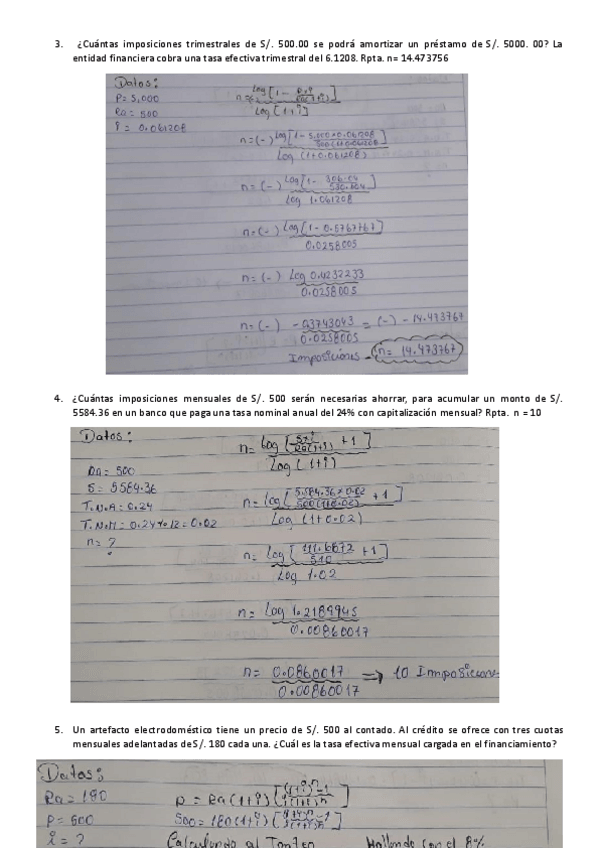 3. ¿Cuántas imposiciones trimestrales de S/. 500.00 se podrá amortizar un préstamo de S/. 5000. 00? La
entidad financiera cobra una tasa efectiva trimestral del 6.1208. Rpta. n= 14.473756
Datos:
P= 5,000
Ra= 500
i = 0.061208
n= Log [1 -
Log [1+i]
n= (-) Log [1 -
Log (1+0.061208)
n= (-) Log [1 - 306.04
530.604
Log 1.061208
n= (-) Log [1 - 0.5767767]
0.0258005
n= (-) Log 0.4232233
0.0258005
n= (-) -0.3743043 = (-) - 14.473767
0.0258005
Imposiciones → n= 14.473767
4. ¿Cuántas imposiciones mensuales de S/. 500 serán necesarias ahorrar, para acumular un monto de S/.
5584.36 en un banco que paga una tasa nominal anual del 24% con capitalización mensual? Rpta. n = 10
Datos:
Ra= 500
S= 5584.36
T.N.A= 0.24
T.N.M= 0.24/12= 0.02
n= ?
n= Log [ S×i / Ra(1+i) + 1]
Log (1+i)
n= Log [ 5,584.36×0.02 / 500(1+0.02) + 1]
Log (1+0.02)
n= Log [ 111.6872 / 510 + 1]
Log 1.02
n= Log 1.2189945
0.00860017
n= 0.0860017 → 10 Imposiciones
0.00860017
5. Un artefacto electrodoméstico tiene un precio de S/. 500 al contado. Al crédito se ofrece con tres cuotas
mensuales adelantadas de S/. 180 cada una. ¿Cuál es la tasa efectiva mensual cargada en el financiamiento?
Datos:
Ra= 180
P= 500
i = ?
P = Ra(1+i) [ (1+i)^n - 1 / i(1+i)^n ]
500 = 180(1+i) [ (1+i)^n - 1 / i(1+i)^n ]
Calculando al Tanteo
Hallando con el 8%